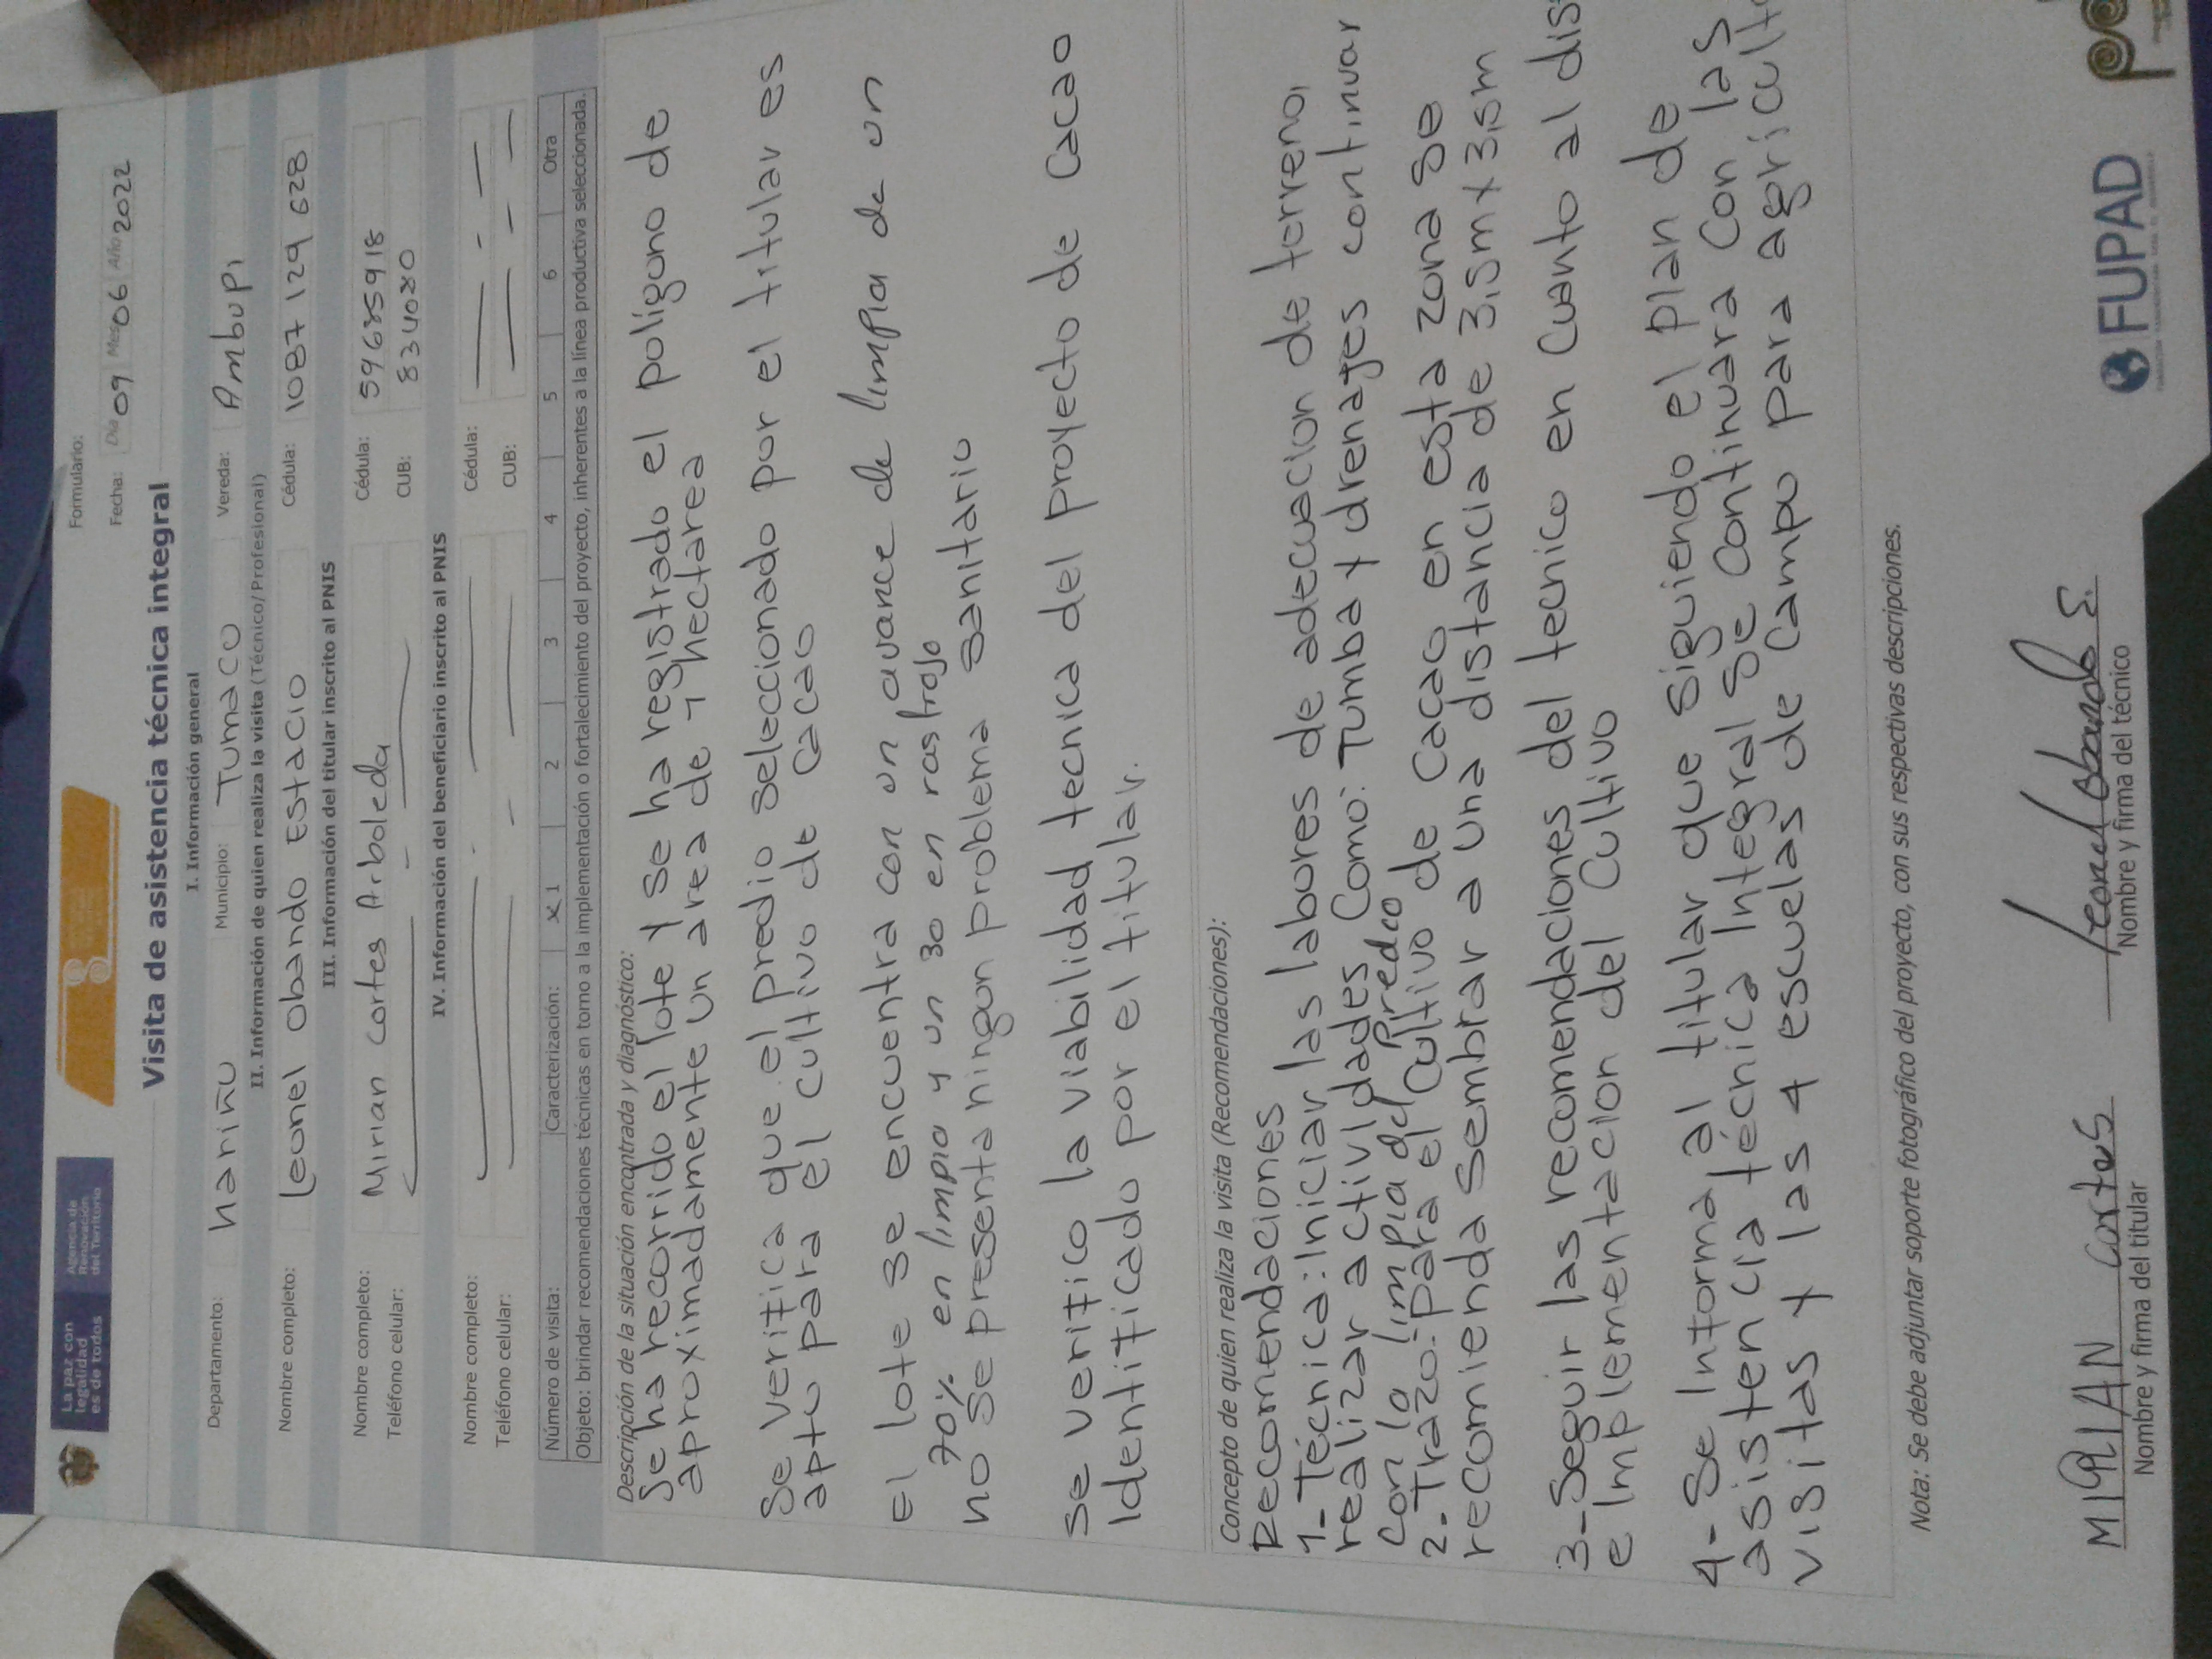 La paz con
legalidad
es de todos
Agencia de
Renovación
del Territorio
Formulario:
Fecha: Día 09 Mes 06 Año 2022
Visita de asistencia técnica integral
I. Información general
Departamento: Nariño Municipio: Tumaco Vereda: Ambupi
II. Información de quien realiza la visita (Técnico/Profesional)
Nombre completo: Leonel Obando Estacio Cédula: 1087 129 628
III. Información del titular inscrito al PNIS
Nombre completo: Mirian Cortes Arboleda Cédula:
Teléfono celular: CUB:
IV. Información del beneficiario inscrito al PNIS
Nombre completo: Cédula:
Teléfono celular: CUB:
Número de visita: Caracterización: X 1 2 3 4 5 6 Otra
Objeto: brindar recomendaciones técnicas en torno a la implementación o fortalecimiento del proyecto, inherentes a la línea productiva seleccionada.
Descripción de la situación encontrada y diagnóstico:
Se ha recorrido el lote y se ha registrado el poligono de
aproximadamente un area de 1 hectarea
Se verifica que el predio seleccionado por el titular es
apto para el cultivo de cacao
El lote se encuentra con un avance de limpia de un
70% en limpio y un 30 en rastrojo
no se presenta ningun problema sanitario
Se verifico la viabilidad tecnica del proyecto de cacao
Identificado por el titular.
Concepto de quien realiza la visita (Recomendaciones):
Recomendaciones
1- Técnica: Iniciar las labores de adecuacion de terreno,
realizar actividades Como: Tumba y drenajes continuar
con la limpia del Predco
2- Trazo: para el Cultivo de Cacao en esta zona se
recomienda sembrar a una distancia de 3,5m x 3,5m
3- Seguir las recomendaciones del tecnico en cuanto al dis
e Implementacion del Cultivo
4- Se Informa al titular que siguiendo el plan de
asistencia técnica Integral se Continuara Con las
visitas y las 4 escuelas de Campo para agricult
Nota: Se debe adjuntar soporte fotográfico del proyecto, con sus respectivas descripciones.
MIRIAN Cortes
Nombre y firma del titular
Leonel Obando E.
Nombre y firma del técnico
FUPAD